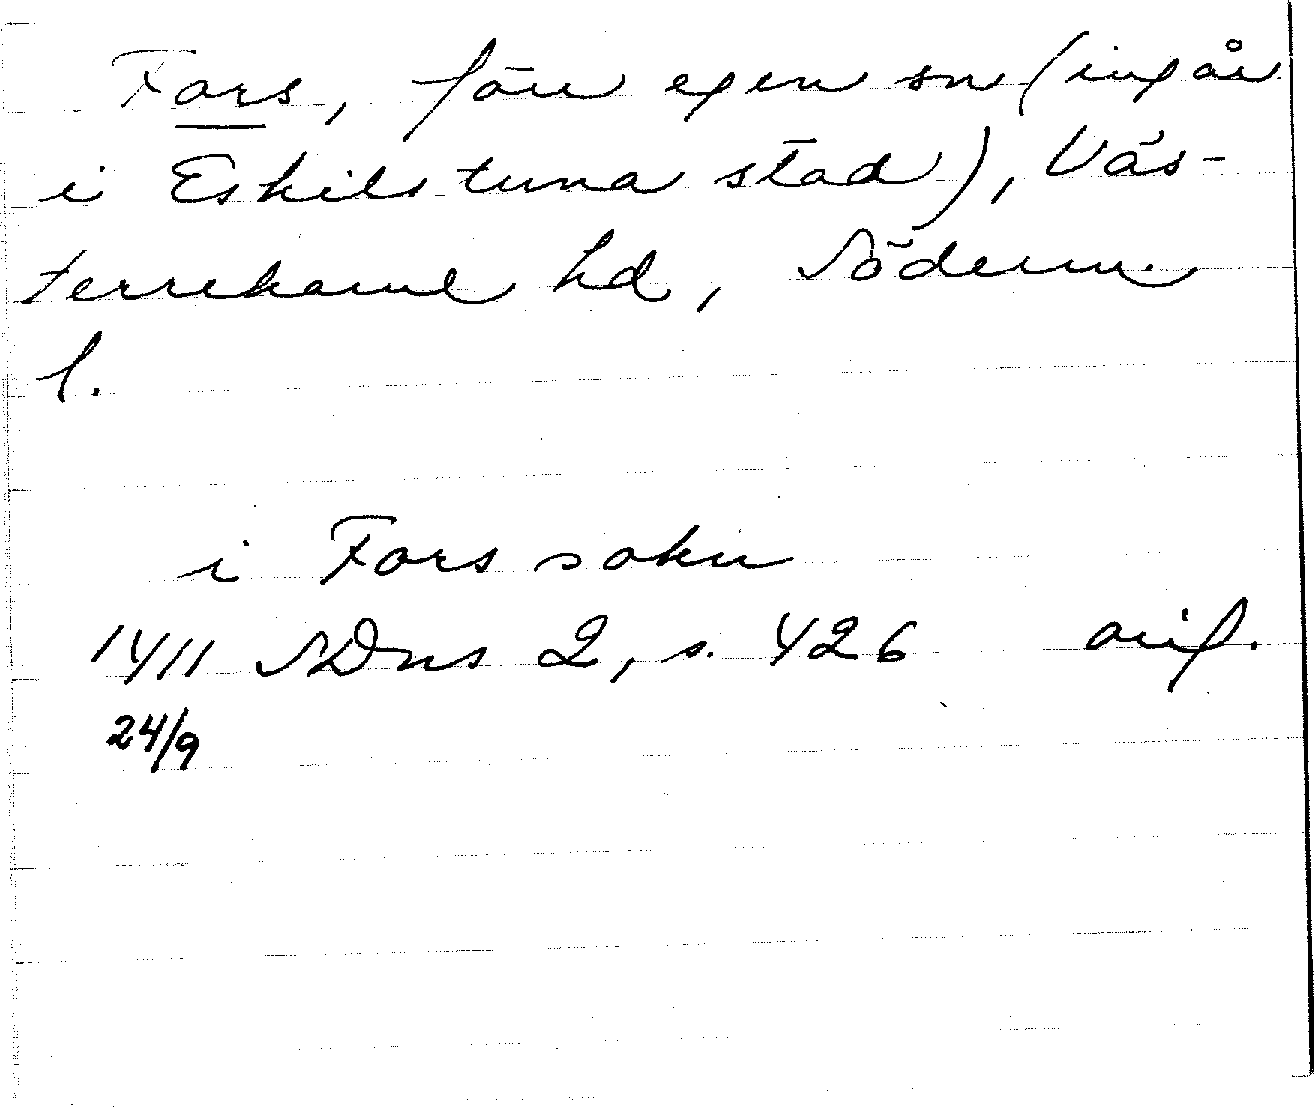 Fors, förr egen sn (ingår
i Eskilstuna stad), Väs-
terrekarne hd, Söderm.
l.
i Fors sokn
1411 SDns 2, s. 426 orig.
24/9